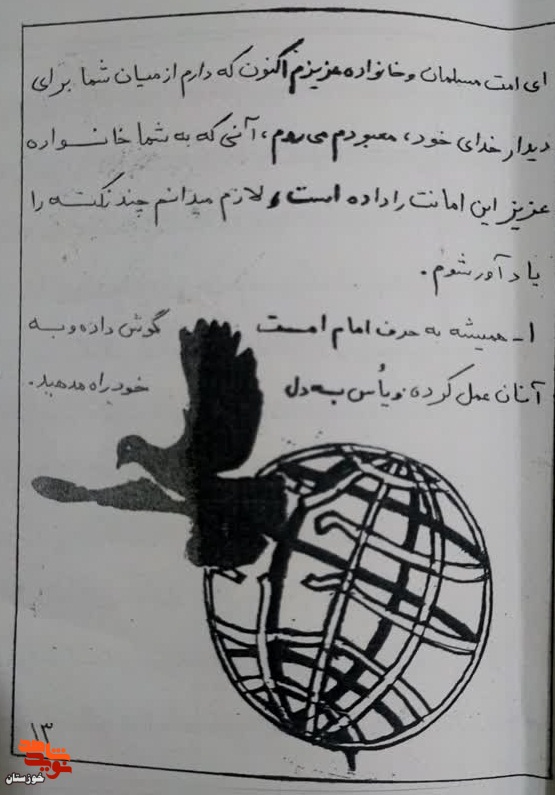 ای امت مسلمان و خانواده عزیزم اکنون که دارم از میان شما برای
دیدار خدای خود، معبودم می روم، آنی که به شما خانواده
عزیز این امانت را داده است و لازم میدانم چند نکته را
یادآور شوم.
۱ـ همیشه به حرف امام امت گوش داده و به
آنان عمل کرده و یأس به دل خود راه مدهید.
۱۳
نوید شاهد
خوزستان